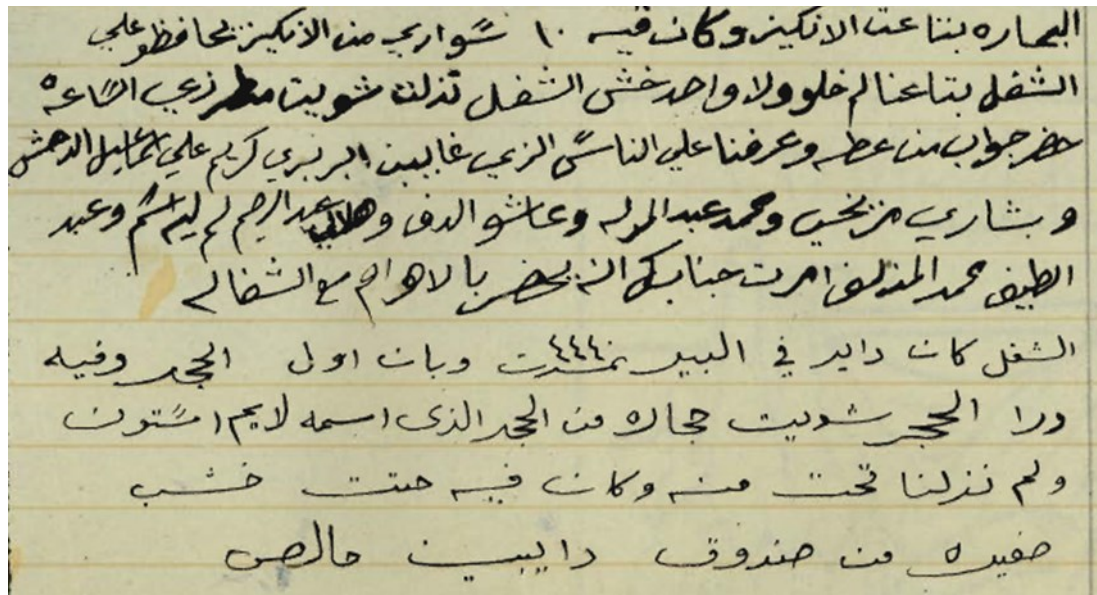 البحاره بتاعت الانكليز وكان فيه ١٠ سواري من الانكليز يحافظو علي
الشغل بتاعنا لم خلو ولا واحد خش الشغل نزلت شويت مطر زي الساعه
حضر جواب من عطه وعرفنا علي الناس الزي غايبين البربري كريم علي اسماعيل الدحش
وبشاري محمد عبد الموله وعاشو الدف وهلال عبد الرحيم لم وعبد
الطيف محمد امرت جنابك انه يحضر بالاهرام مع الشغاله
الشغل كان داير في البير نمرت ٤٤٤ وبان اول الحجر وفيه
ورا الحجر شويت حجاره من الحجر الذى اسمه لايم استون
ولم نزلنا تحت منه وكان فيه حتت خشب
صغيره من صندوق دايبين خالص